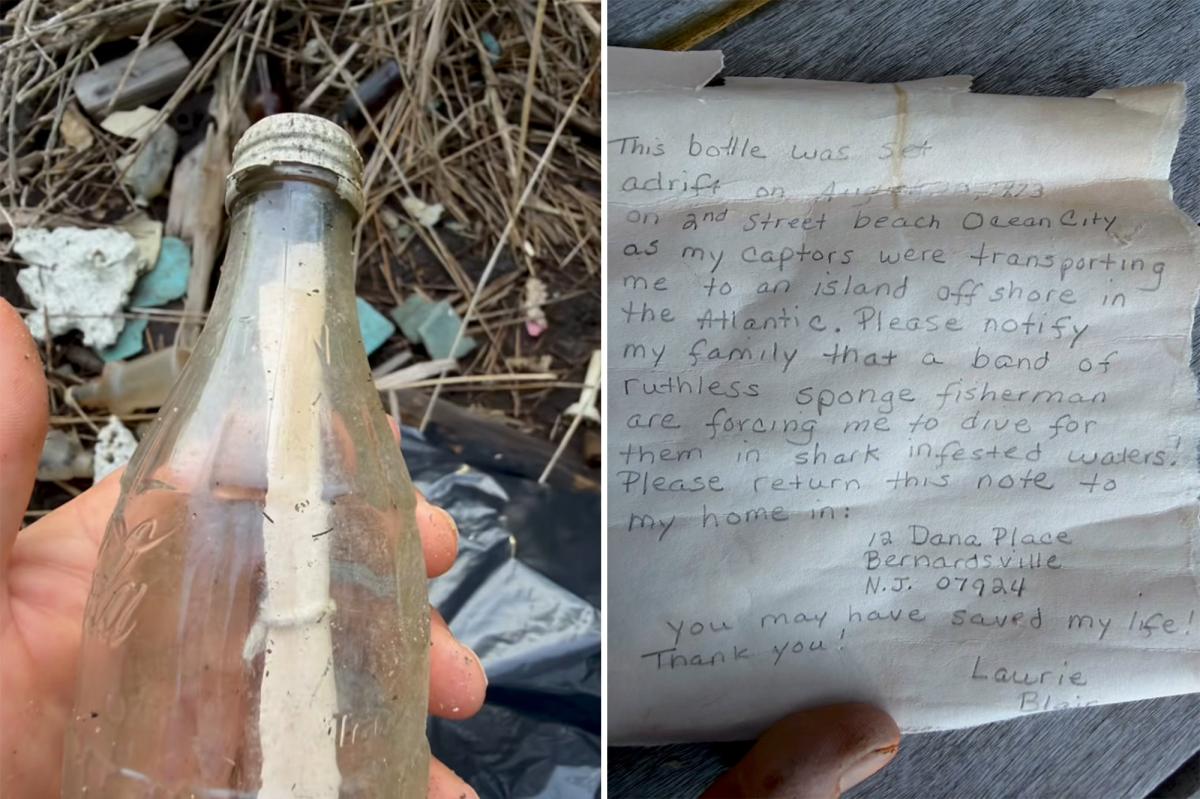 This bottle was set
adrift on August
on 2nd Street beach Ocean City
as my captors were transporting
me to an island off shore in
the Atlantic. Please notify
my family that a band of
ruthless sponge fisherman
are forcing me to dive for
them in shark infested waters!
Please return this note to
my home in:
12 Dana Place
Bernardsville
N.J. 07924
you may have saved my life!
Thank you!
Laurie
Blair